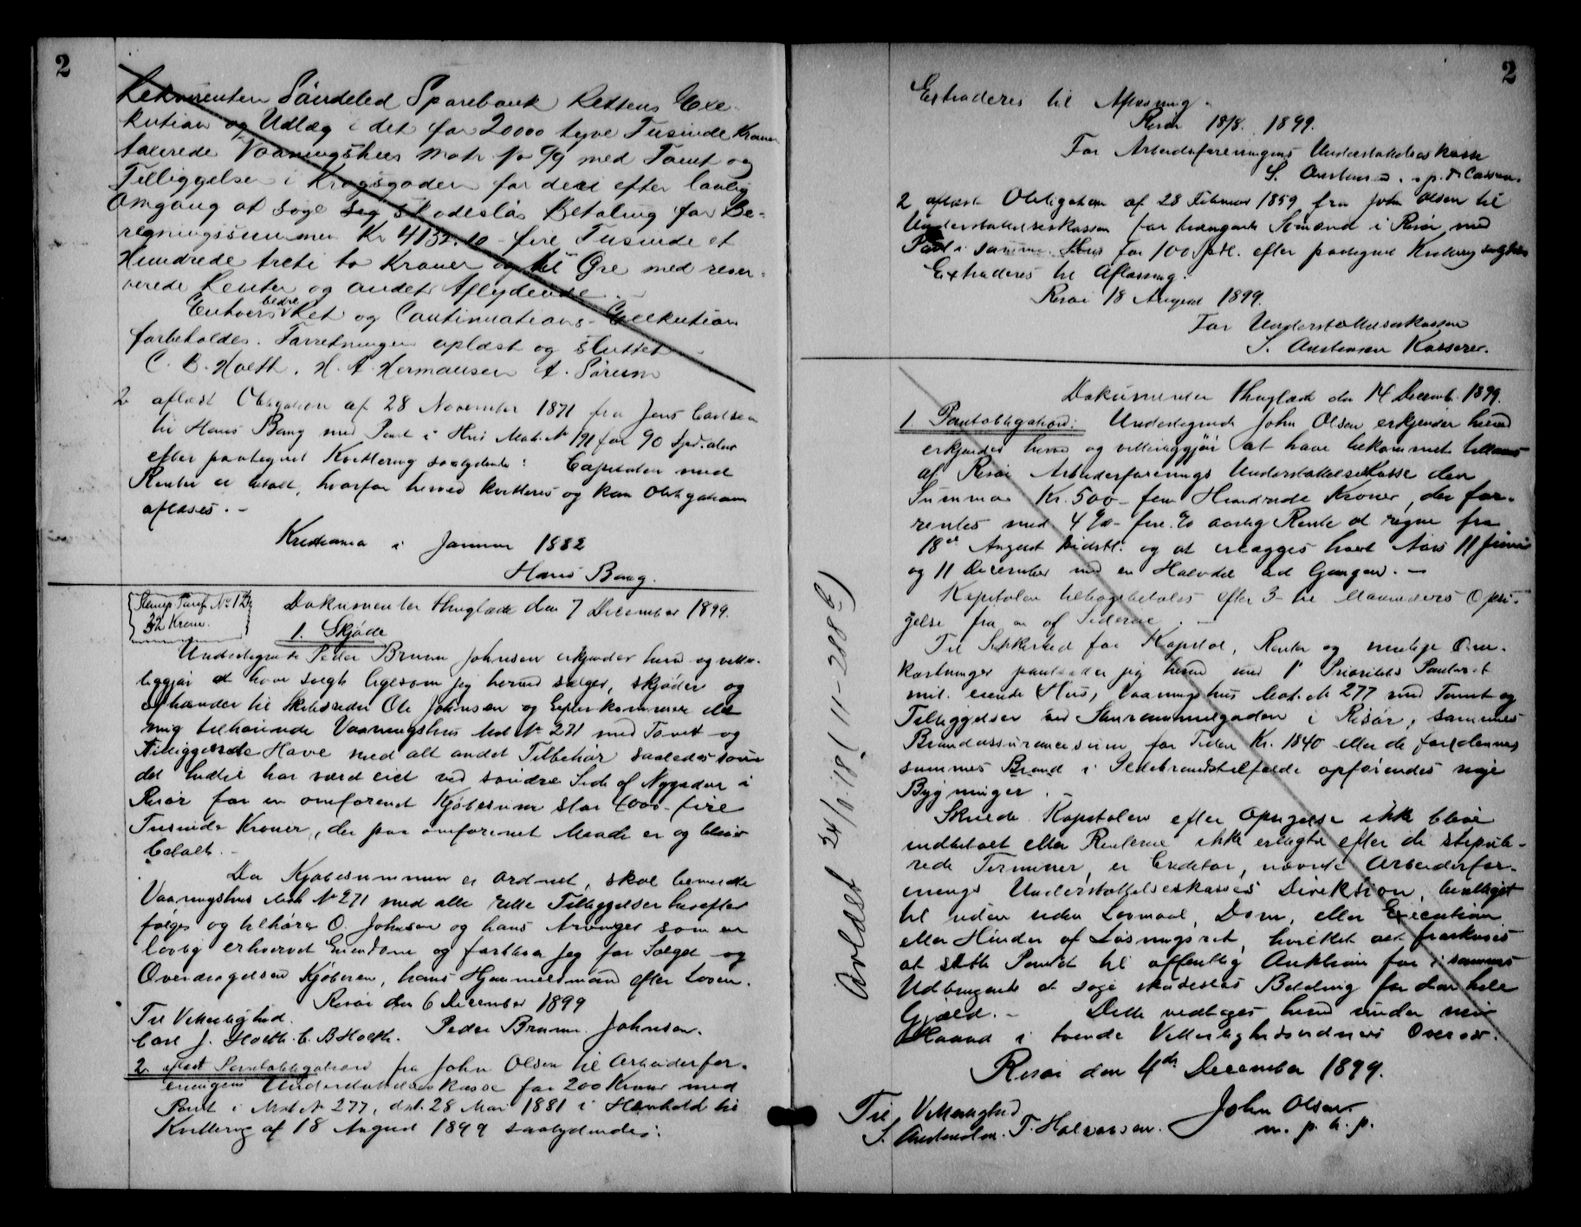 2
Rekvirenten Söndeled Sparebank Rettens Exe-
kution og Udlæg i det for 20000 tyve Tusinde Kroner
taxerede Vaaningshus Matr No 99 med Tomt og
Tilliggelser i Kragsgaden for deri efter lovlig
Omgang at söge sig skadeslös Betaling for Be-
regningssummen Kr 4132.10 - fire Tusinde et
Hundrede treti to Kroner og ti Öre med reser-
verede Renter og andet Aflydende. -
Enhvers bedre Ret og Continuations-Exekution
forbeholdes. Forretningen oplæst og sluttet
C. B. Hoelh. H. A. Hermansen A. Sörum
2 aflæst Obligation af 28 November 1871 fra Jens Carlsen
til Hans Bang med Pant i Hus Mat. No 191 for 90 Spd.
efter paategnet Kvittering saalydende: Capitalen med
Renter er betalt, hvorfor herved kvitteres og kan Obligationen
aflæses. -
Kristiania i Januar 1882
Hans Bang.
Dokumenter thinglæste den 7 December 1899.
Stempl. Papir No 12
32 Kroner.
1. Skjöde
Undertegnede Peder Brumm Johnsen erkjender herved og vitter-
liggjör at have solgt ligesom jeg herved sælger, skjöder og
afhænder til Skibsreder Ole Johnsen og Expeks det
mig tilhörende Vaaningshus Mat No 271 med Tomt og
tilliggende Have med alt andet Tilbehör saaledes som
det hidtil har været eiet ved söndre Side af Nygaden i
Risör for en omforenet Kjöbesum stor 4000 - fire
Tusinde Kroner, der paa omforenet Maade er og bliver
betalt. -
Da Kjöbesummen er ordnet, skal bemeldte
Vaaningshus Mat No 271 med alle rette Tilliggelser herefter
fölge og tilhöre O. Johnsen og hans Arvinger som en
lovlig erhvervet Eiendom og forbliver jeg for Salget og
Overdragelsen Kjöberen, hans Hjemmelsmand efter Loven.
Risör den 6 December 1899
Til Vitterlighed. Peder Brumm Johnsen.
Carl J. Hoelh. C. B. Hoelh.
2. aflæst Pantobligation fra John Olsen til Arbeiderfor-
eningens Understöttelseskasse for 200 Kroner med
Pant i Mat No 277, dat. 28 Mai 1881 i Henhold til
Kvittering af 18 August 1899 saalydende:
2
Extraderes til Aflæsning.
Risör 18/8. 1899.
For Arbeiderforeningens Understöttelseskasse
S. Austensen. p. t. Casserer.
2 aflæst Obligation af 28 Februar 1859 fra John Olsen til
Understöttelseskassen for trængende Sömænd i Risör med
Pant i samme Hus for 100 Spdl. efter paategnet Kvittering saalydende
Extraderes til Aflæsning.
Risör 18 August 1899.
For Understöttelseskassen
S. Austensen Kasserer.
Dokumenter thinglæst den 14 Decemb. 1899.
1 Pantobligation: Undertegnede John Olsen erkjender herved
erkjender herved og vitterliggjör at have bekommet tillaans
af Risör Arbeiderforenings Understöttelseskasse den
Summa Kr. 500 - fem Hundrede Kroner, der for-
rentes med 4 % - fire % aarlig Rente at regne fra
18de August sidstl. og at erlægges hvert Aars 11 Juni
og 11 December med en Halvdel ad Gangen. -
Kapitalen tilbagebetales efter 3 - tre Maaneders Opsi-
gelse fra en af Siderne. -
Til Sikkerhed for Kapital, Renter og mulige Om-
kostninger pantsætter jeg herved med 1ste Prioritets Panteret
mit eiende Hus, Vaaningshus Mat. No 277 med Tomt og
Tilliggelser ved i Risör, sammes
Brandassurancesum for Tiden Kr. 1840 - eller de for dennes
sammes Brand i Ildebrandstilfælde opförendes nye
Bygninger.
Skulde Kapitalen efter Opsigelse ikke blive
indbetalt eller Renterne ikke erlagte efter de stipule-
rede Terminer, er Creditor, nævnte Arbeiderfor-
enings Understöttelseskasses Direktion, berettiget
til uden Lovmaal, Dom, eller Execution
eller Hinder af Lösningsret, hvilket alt fraskrives
at stille Pantet til offentlig Auktion for i sammes
Udbringende at söge skadeslös Betaling for den hele
Gjæld. - Dette vedtages herved under min
Haand i tvende Vitterlighedsvidners Overvær.
Risör den 4de December 1899.
Til Vitterlighed John Olsen
S. Austensen. T. Halvorsen. m. p. P.
Avlæst 24/ 18. (11-288)